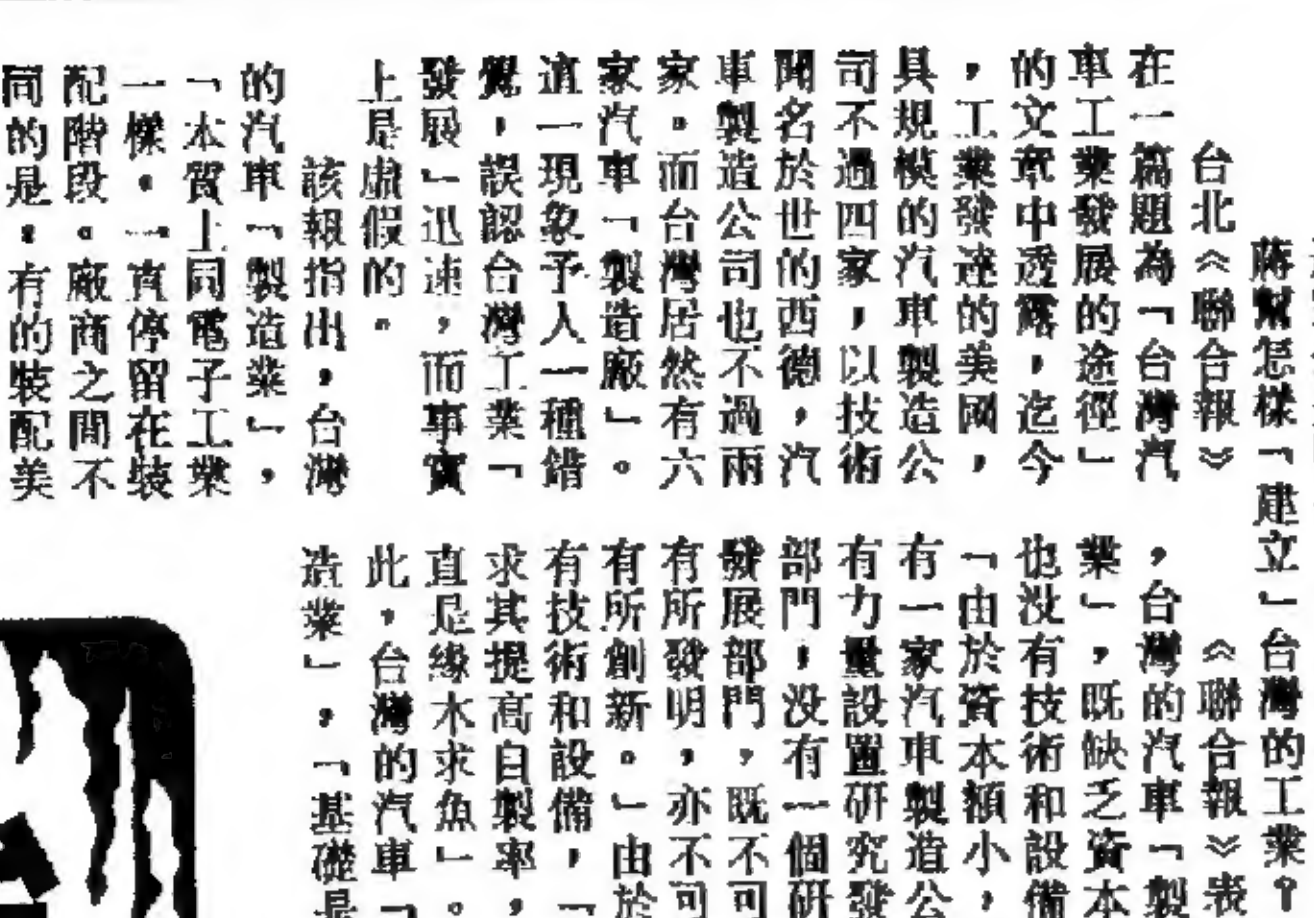 蔣幫怎樣「建立」台灣的工業?
台北《聯合報》
在一篇題為「台灣汽
車工業發展的途徑」
的文章中透露,迄今
,工業發達的美國,
具規模的汽車製造公
司不過四家,以技術
聞名於世的西德,汽
車製造公司也不過兩
家。而台灣居然有六
家汽車「製造廠」。
這一現象予人一種錯
覺,誤認台灣工業「
發展」迅速,而事實
上是虛假的。
該報指出,台灣
的汽車「製造業」,
「本質上同電子工業
一樣。一直停留在裝
配階段。廠商之間不
同的是,有的裝配美
《聯合報》表
,台灣的汽車「製
業」,既缺乏資本
也没有技術和設備
「由於資本額小,
有一家汽車製造公
有力量設置研究發
部門,没有一個研
發展部門,既不可
有所發明,亦不可
有所創新。」由於
有技術和設備,「
求其提高自製率,
直是緣木求魚」。
此,台灣的汽車「
造業」,「基礎是